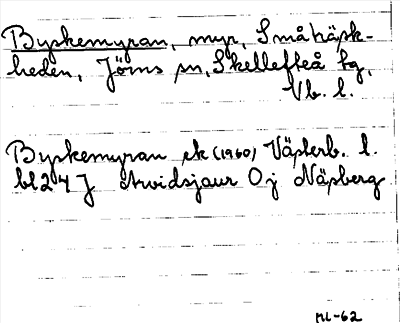 Byskemyran, myr, Småträsk-
heden, Jörns sn, Skellefteå tg,
Vb. l.
Byskemyran ek (1960) Västerb. l.
bl 24 J Arvidsjaur Oj Näsberg
ML-62